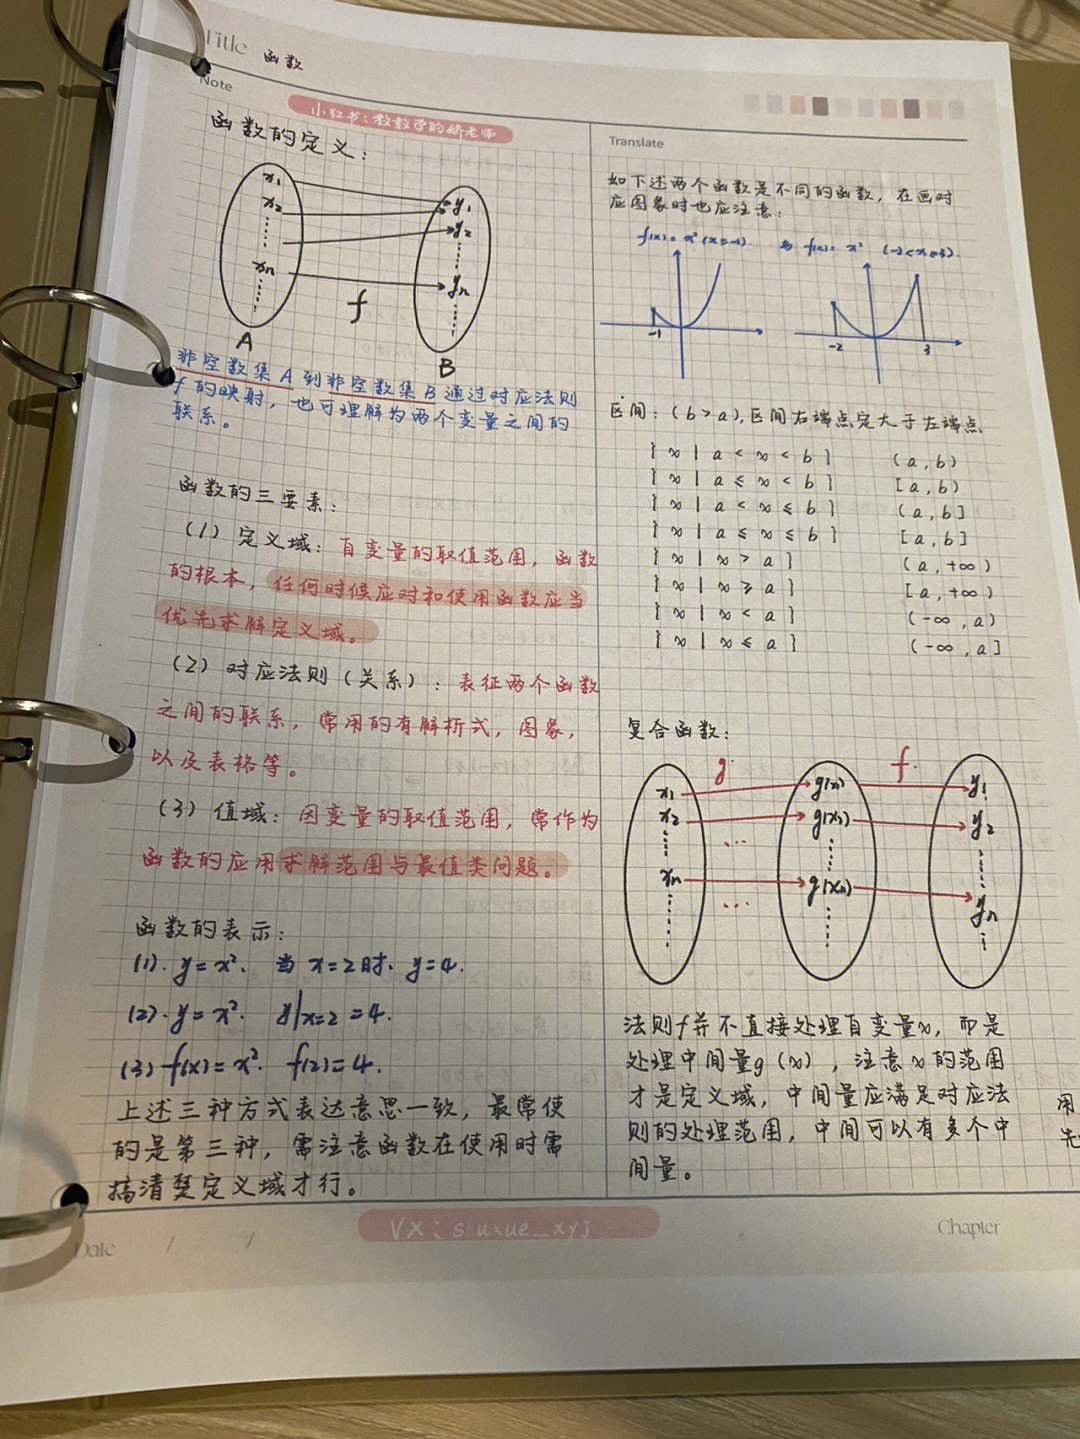 Title 函数
Note
小红书：教数学的娇老师
函数的定义：
x₁
x₂
xₙ
y₁
y₂
yₙ
f
A
B
非空数集A到非空数集B通过对应法则
f的映射，也可理解为两个变量之间的
联系。
函数的三要素：
(1) 定义域：自变量的取值范围，函数
的根本，任何时候应对和使用函数应当
优先求解定义域。
(2) 对应法则（关系）：表征两个函数
之间的联系，常用的有解析式，图象，
以及表格等。
(3) 值域：因变量的取值范围，常作为
函数的应用求解范围与最值类问题。
函数的表示：
(1). y=x². 当 x=2时. y=4.
(2). y=x². y|x=2 =4.
(3) f(x)=x². f(2)=4.
上述三种方式表达意思一致，最常使
的是第三种，需注意函数在使用时需
搞清楚定义域才行。
Translate
如下述两个函数是不同的函数，在画对
应图象时也应注意：
f(x)=x² (x≥-1) 与 f(x)=x² (-2≤x≤3).
-1
-2
3
区间：(b>a),区间右端点定大于左端点
{ x | a < x < b } (a,b)
{ x | a ≤ x < b } [a,b)
{ x | a < x ≤ b } (a,b]
{ x | a ≤ x ≤ b } [a,b]
{ x | x > a } (a,+∞)
{ x | x ≥ a } [a,+∞)
{ x | x < a } (-∞,a)
{ x | x ≤ a } (-∞,a]
复合函数：
g.
f.
x₁ g(x₁) y₁
x₂ g(x₂) y₂
xₙ g(xₙ) yₙ
法则f并不直接处理自变量x，而是
处理中间量g（x），注意x的范围
才是定义域，中间量应满足对应法
则的处理范围，中间可以有多个中
间量。
用
先
VX：shuxue_xyj
Date / /
Chapter